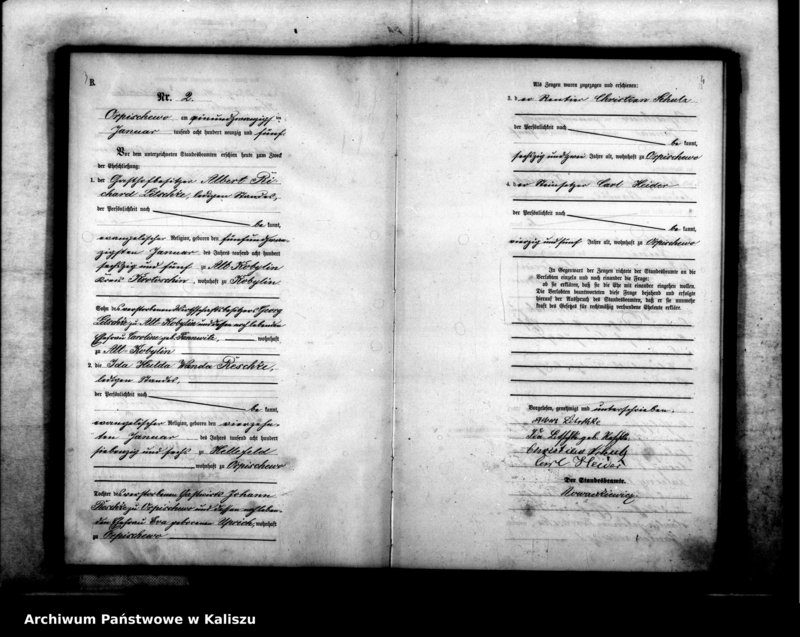 B.
Nr. 2.
Orpischewo am einundzwanzigsten
Januar tausend acht hundert neunzig und fünf
Vor dem unterzeichneten Standesbeamten erschien heute zum Zweck
der Eheschließung:
1. der Gasthofbesitzer Albert Ri-
chard Letschke, ledigen Standes,
der Persönlichkeit nach
be kannt,
evangelischer Religion, geboren den fünfundzwan-
zigsten Januar des Jahres tausend acht hundert
sechszig und fünf zu Alt Kobylin
Kreis Krotoschin, wohnhaft zu Kobylin
Sohn des verstorbenen Wirthschaftsbesitzers Georg
Letschke zu Alt Kobylin und dessen noch lebenden
Ehefrau Caroline geb. wohnhaft
zu Alt-Kobylin
2. die Ida Hulda Wanda Reschke,
ledigen Standes,
der Persönlichkeit nach
be kannt,
evangelischer Religion, geboren den vierzehn-
ten Januar des Jahres tausend acht hundert
siebenzig und sechs zu Hellefeld
wohnhaft zu Orpischewo
Tochter des verstorbenen Gastwirts Johann
Reschke zu Orpischewo und dessen noch leben-
den Ehefrau Eva geborenen wohnhaft
zu Orpischewo
Als Zeugen waren zugezogen und erschienen:
3. der Rentier Christian Schulz
der Persönlichkeit nach
be kannt,
sechszig und zwei Jahre alt, wohnhaft zu Orpischewo
4. der Steinsetzer Carl Heider
der Persönlichkeit nach
be kannt,
vierzig und fünf Jahre alt, wohnhaft zu Orpischewo
In Gegenwart der Zeugen richtete der Standesbeamte an die
Verlobten einzeln und nach einander die Frage:
ob sie erklären, daß sie die Ehe mit einander eingehen wollen.
Die Verlobten beantworteten diese Frage bejahend und erfolgte
hierauf der Ausspruch des Standesbeamten, daß er sie nunmehr
kraft des Gesetzes für rechtmäßig verbundene Eheleute erkläre.
Vorgelesen, genehmigt und unterschrieben.
Albert Letschke
Ida Letschke geb. Reschke
Christian Schulz
Carl Heider
Der Standesbeamte.
Nowackiewicz.
Archiwum Państwowe w Kaliszu